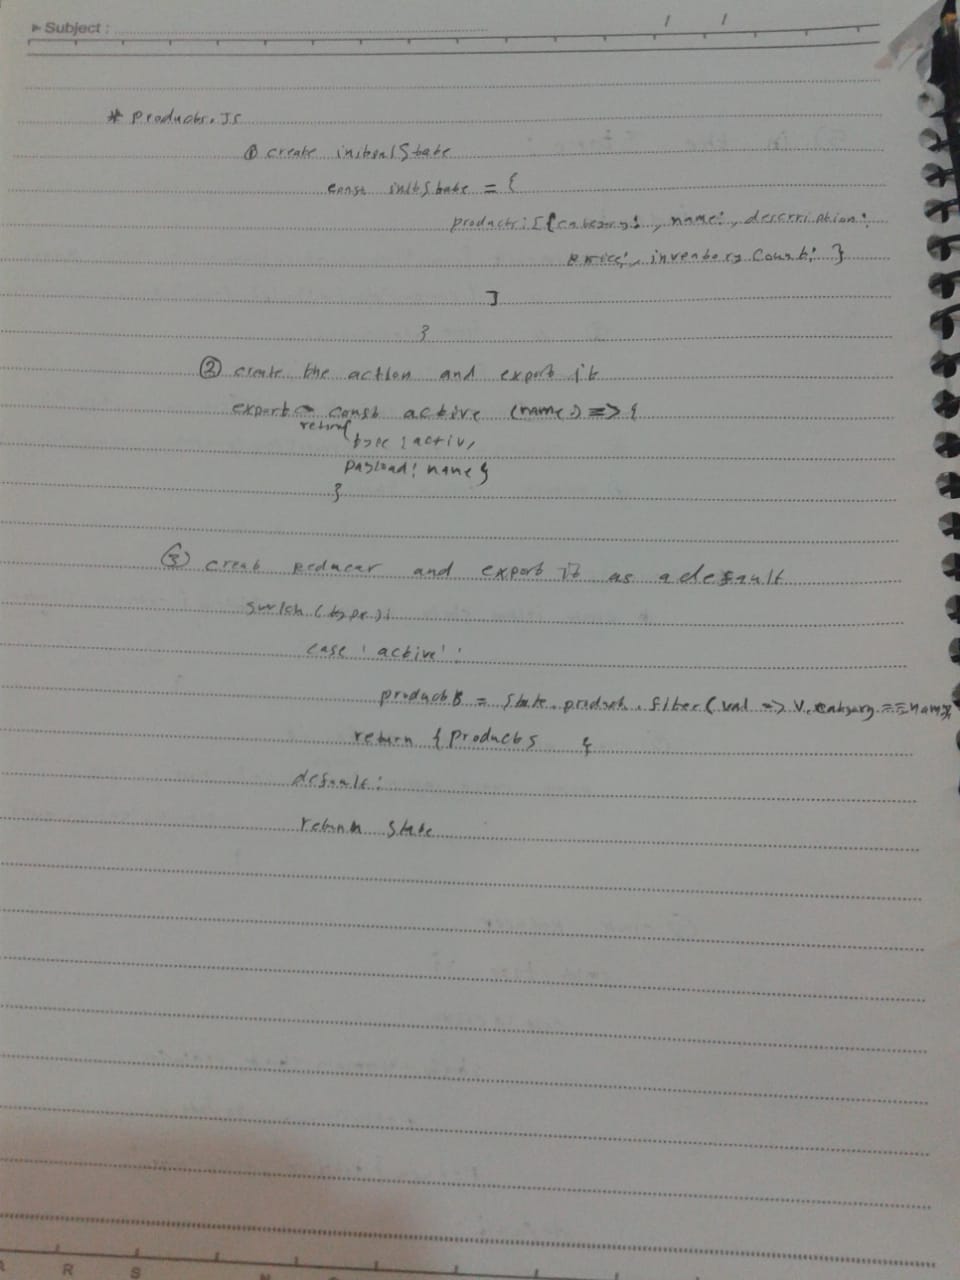 Subject :
/ /
* products.JS
① create initialState
const initState = {
products: [{category: , name: , description:
price: , inventory Count: }
]
}
② create the action and export it
export const active (name) => {
return {
type : activ,
payload: name }
}
③ creat reducer and export it as a default
switch (type):
case 'active' :
products = state. products . filter (val => v.category === name);
return { products {
default:
return state
R S